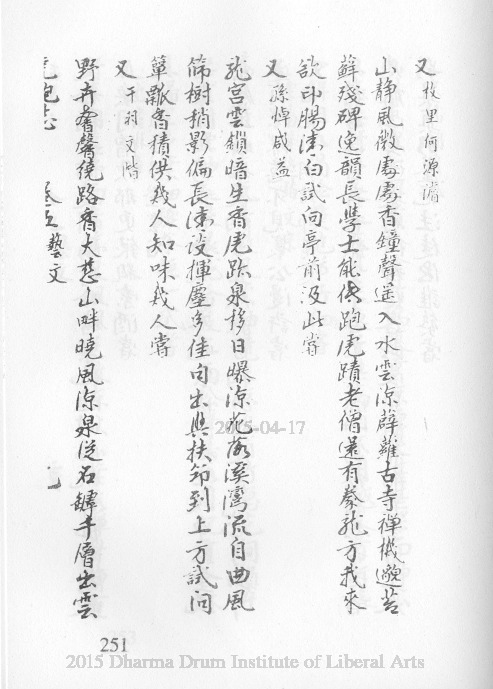 又 牧里何源濬
山靜風微處處香鐘聲遥入水雲涼薜蘿古寺禪機邈苔
蘚殘碑逸韻長學士能傳跑虎蹟老僧還有豢龍方我來
欲印腸清白試向亭前汲此嘗
又 孫悼成益
龍宮雲鎖暗生香虎跑泉移日曝涼花落溪灣流自曲風
篩樹梢影偏長清談揮麈多佳句出與扶筇到上方試问
簞瓢香積供幾人知味幾人嘗
又 于羽文偕
野卉奢馨繞路香大慈山畔曉風涼泉從石罅千層出雲
跑志 藝文
251
2015-04-17
2015 Dharma Drum Institute of Liberal Arts